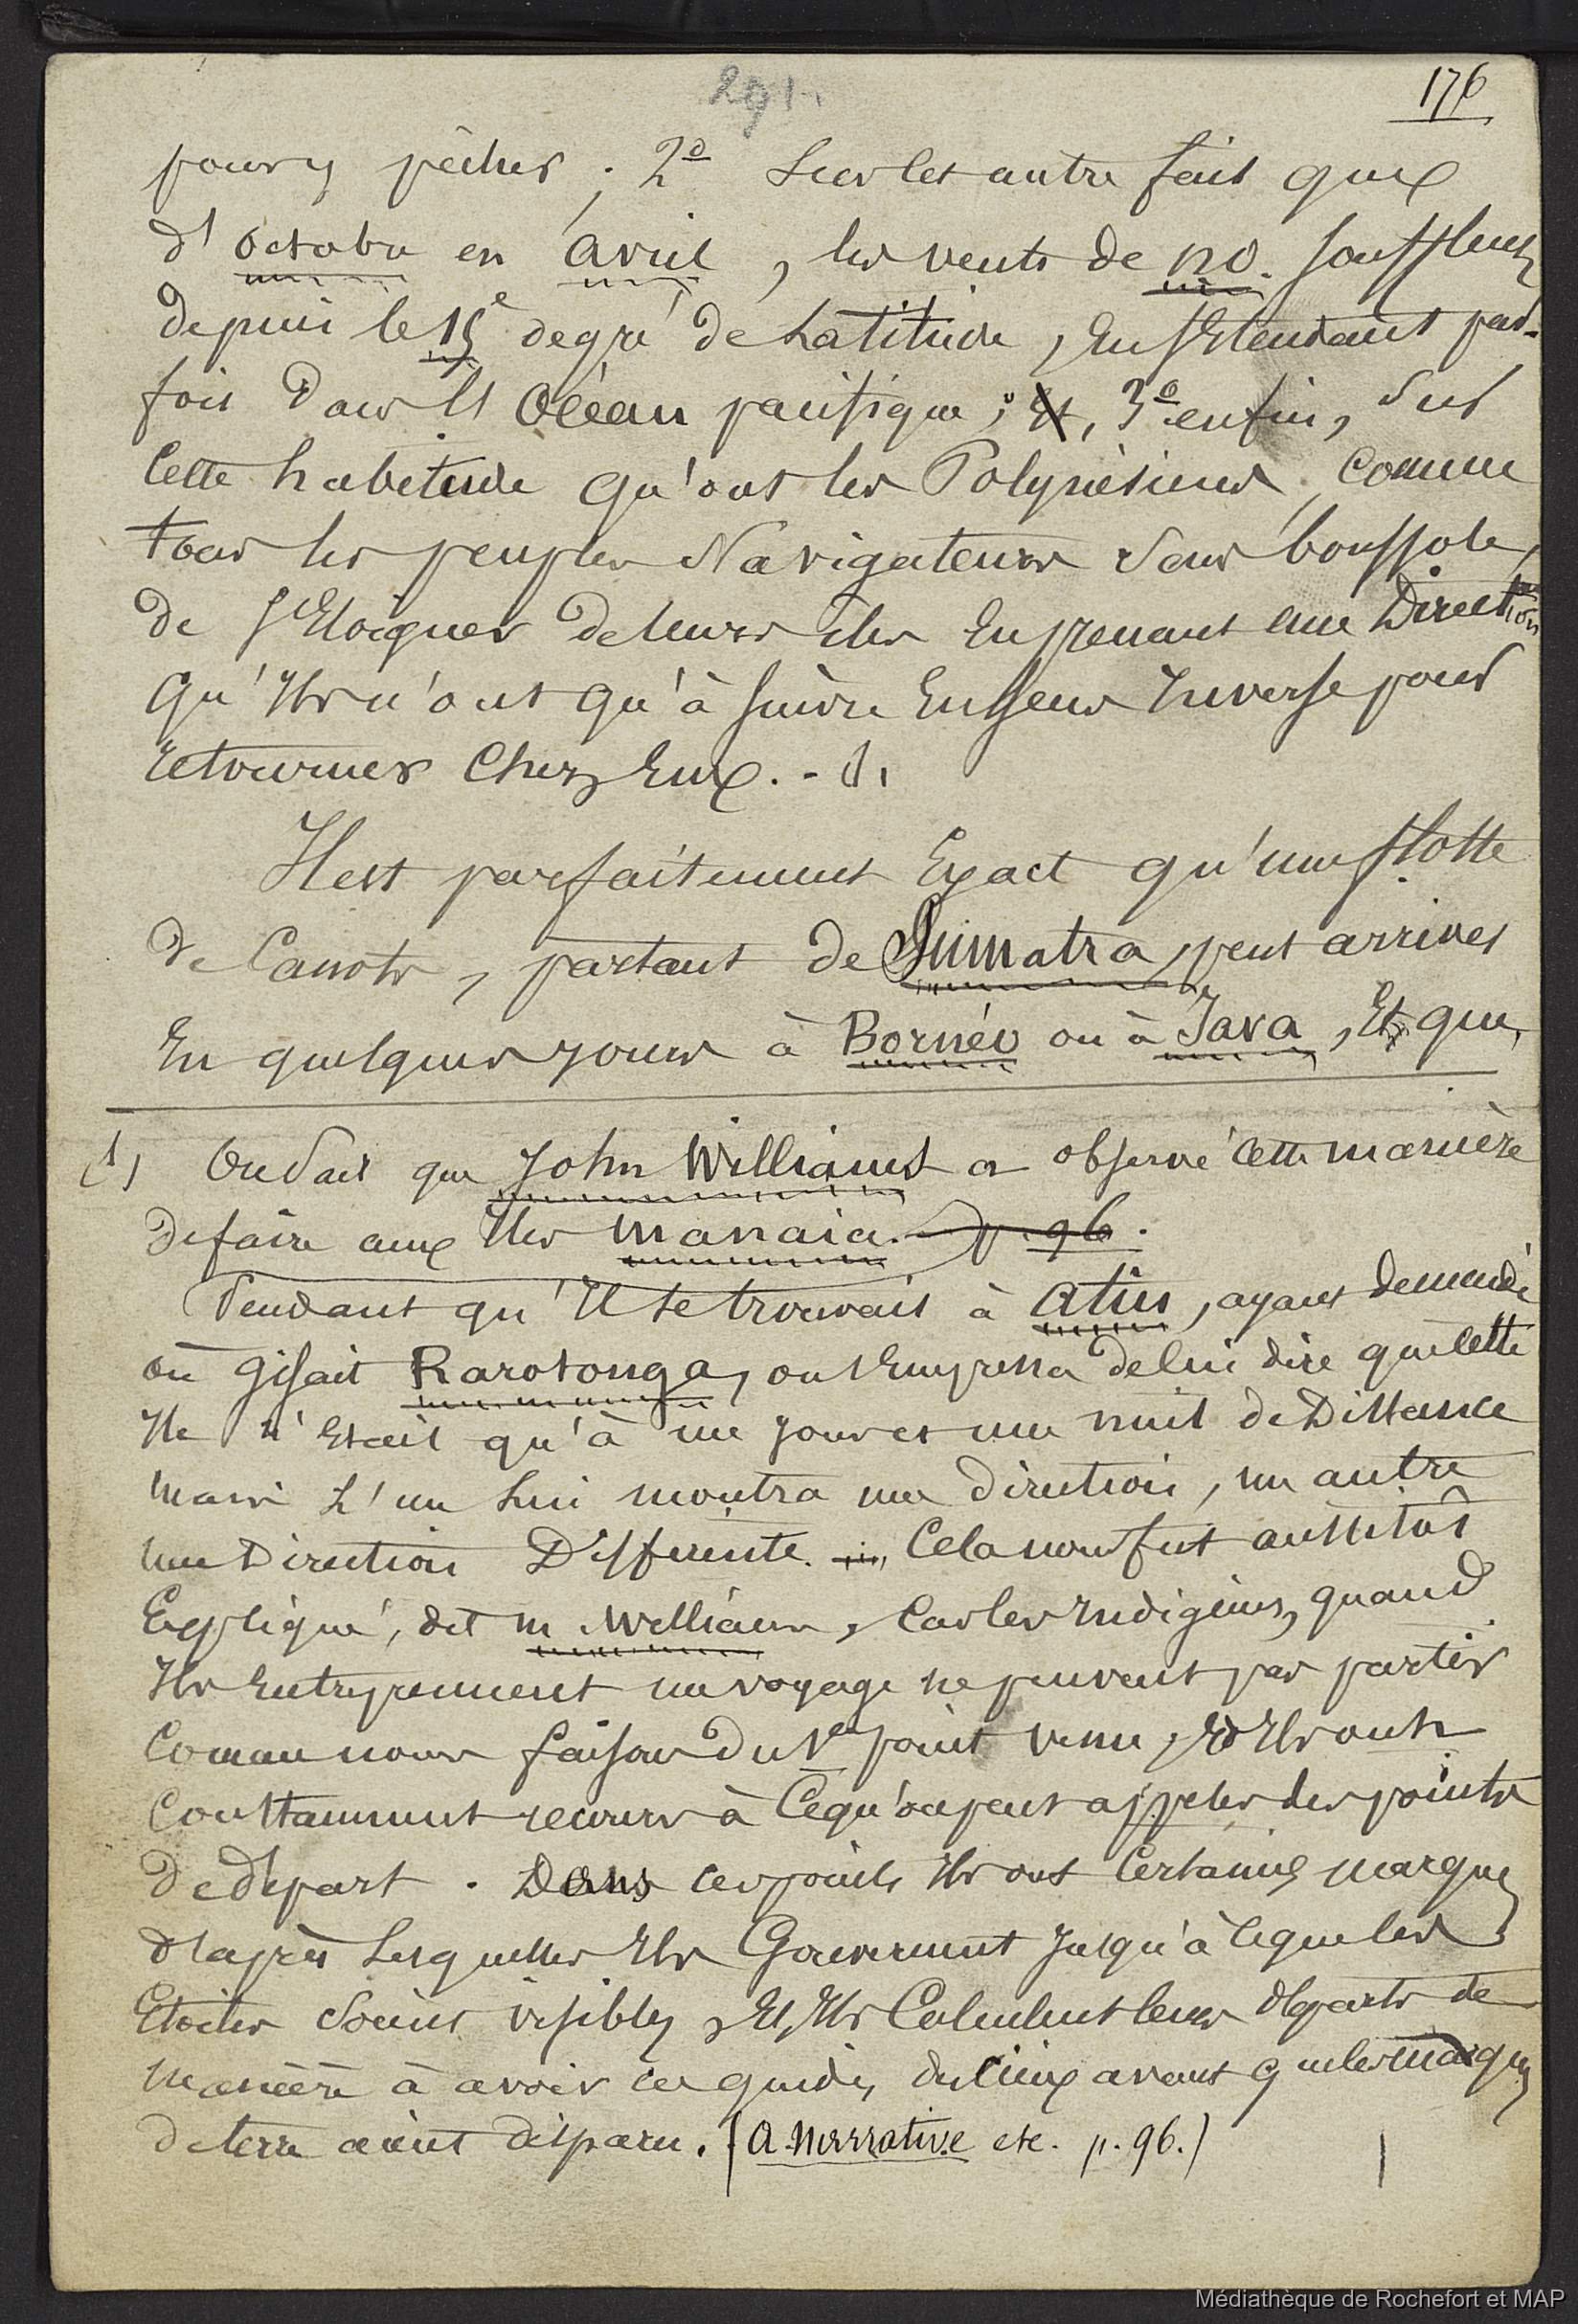 291.
176
pour y pêcher ; 2º Sur cet autre fait que
d'octobre en avril, les vents de no. soufflent
depuis le 15e degré de Latitude, en s'Etendant par-
fois dans l'Est Océan pacifique ; Et, 3º enfin, sur
Cette habitude qu'ont les Polynésiens, comme
tous les peuples Navigateurs sans boussole,
de s'Eloigner de leurs iles En prenant une Direction
qu'Ils n'ont qu'à suivre En sens Inverse pour
retourner Chez Eux. - (1)
Il est parfaitement Exact qu'une flotte
de Canots, partant de Sumatra, peut arriver
En quelques jours à Bornéo ou à Java, Et que,
(1) On sait que John Williams a observé cette manière
de faire aux Iles manaia. p. 96.
Pendant qu'Il se trouvait à Atiu, ayant demandé
où gisait Rarotonga, on s'Empressa de lui dire que cette
Ile n'Etait qu'à un jour et une nuit de Distance
mais L'un Lui montra une direction, un autre
une Direction Différente. Cela nous fut aussitôt
Expliqué, dit m. Williams, Car les Indigènes, quand
Ils Entreprennent un voyage ne peuvent pas partir
Comme nous faisons du 1er point venu, Et Ils ont
Constamment recours à Ce qu'on peut appeler des points
De départ. Dans ces points Ils ont Certaines marques
d'après Lesquelles Ils Gouvernent Jusqu'à ce que les
Etoiles Soient visibles, Et, Ils Calculent leurs départs de
manière à avoir ces guides des Cieux avant que les marques
de terre aient disparu. (A Narrative etc. p. 96.)
Médiathèque de Rochefort et MAP